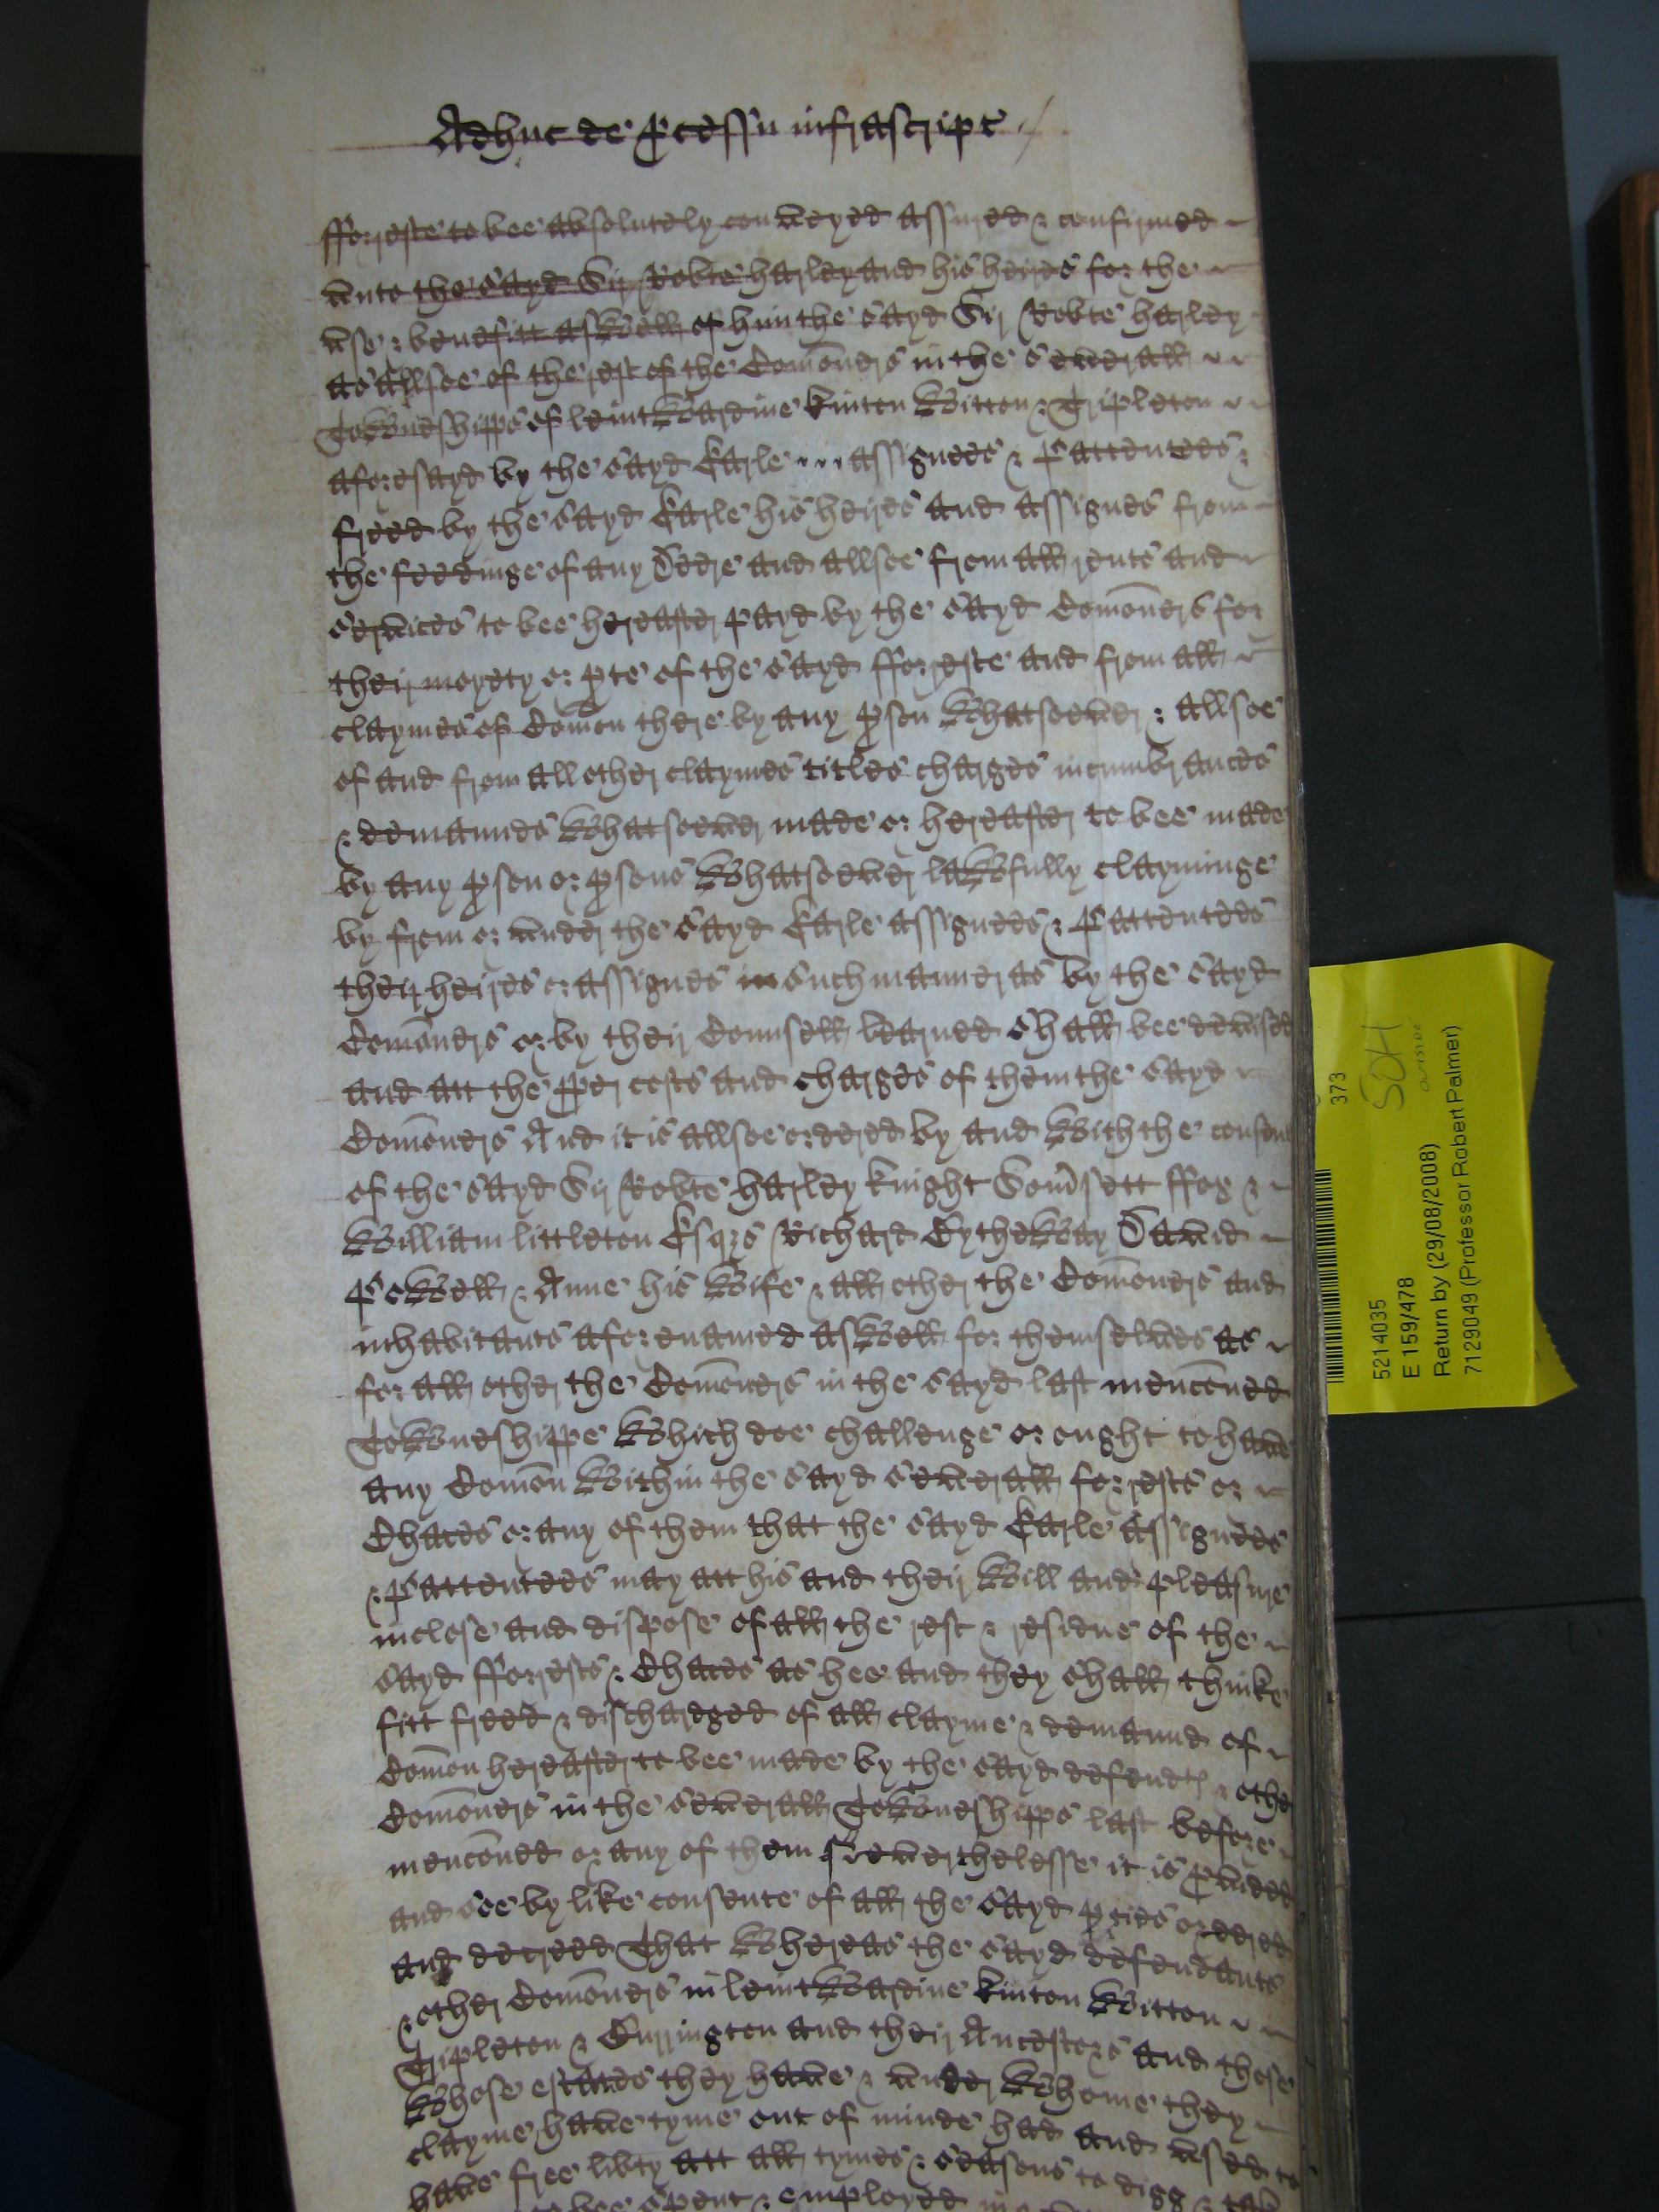 Adhuc de pcessu infrascript
fforeste to bee absolutely conveyed assured & confirmed
unto the sayd Sir Robte harley and his heires for the
use & benefitt aswell of him the sayd Sir Robte harley
as allsoe of the rest of the Comoners in the severall
Towneshipps of leintwardine kinton Witton & Tripleton
aforesayd by the sayd Earle assignees & Pattentees &
freed by the sayd Earle his heires and assignes from
the feedinge of any Deere and allsoe from all rents and
services to bee hereafter payd by the sayd Comoners for
their moyety or pte of the sayd fforeste and from all
claymes of Comon there by any pson whatsoever & allsoe
of and from all other claymes titles charges incumbrances
& demaunds whatsoever made or hereafter to bee made
by any pson or psons whatsoever lawfully clayminge
by from or under the sayd Earle assignees & Pattentees
their heires or assignes in such manner as by the sayd
Comoners or by their Counsell learned shall bee devised
and att the pper costs and charges of them the sayd
Comoners And it is allsoe ordered by and with the consent
of the sayd Sir Robte harley knight Somersett ffox &
William littleton Esqrs Richard Hytheway David
Powell & Anne his wife & all other the Comoners and
inhabitants aforenamed aswell for themselves as
for all other the Comoners in the sayd last mencōned
Towneshippe which doe challenge or ought to have
any Comon within the sayd severall forests or
Chaces or any of them that the sayd Earle assignees
& Pattentees may att his and their will and pleasure
inclose and dispose of all the rest & residue of the
sayd fforests & Chaces as hee and they shall thinke
fitt freed & dischardged of all clayme & demaund of
Comon hereafter to bee made by the sayd defendts & other
Comoners in the severall Towneshipps last before
mencōned or any of them Neverthelesse it is pvided
and soe by like consente of all the sayd pties ordered
and decreed That whereas the sayd defendants
& other Comoners in leintwardine kinton Witton
Tripleton & Burrington and their Ancestors and those
whose estates they have & under whome they
clayme have tyme out of minde had and used to
have free libty att all tymes & seasons to digg & take
to bee spent & employed in
5214035
E 159/478
Return by (29/08/2008)
7129049 (Professor Robert Palmer)
373
SOH